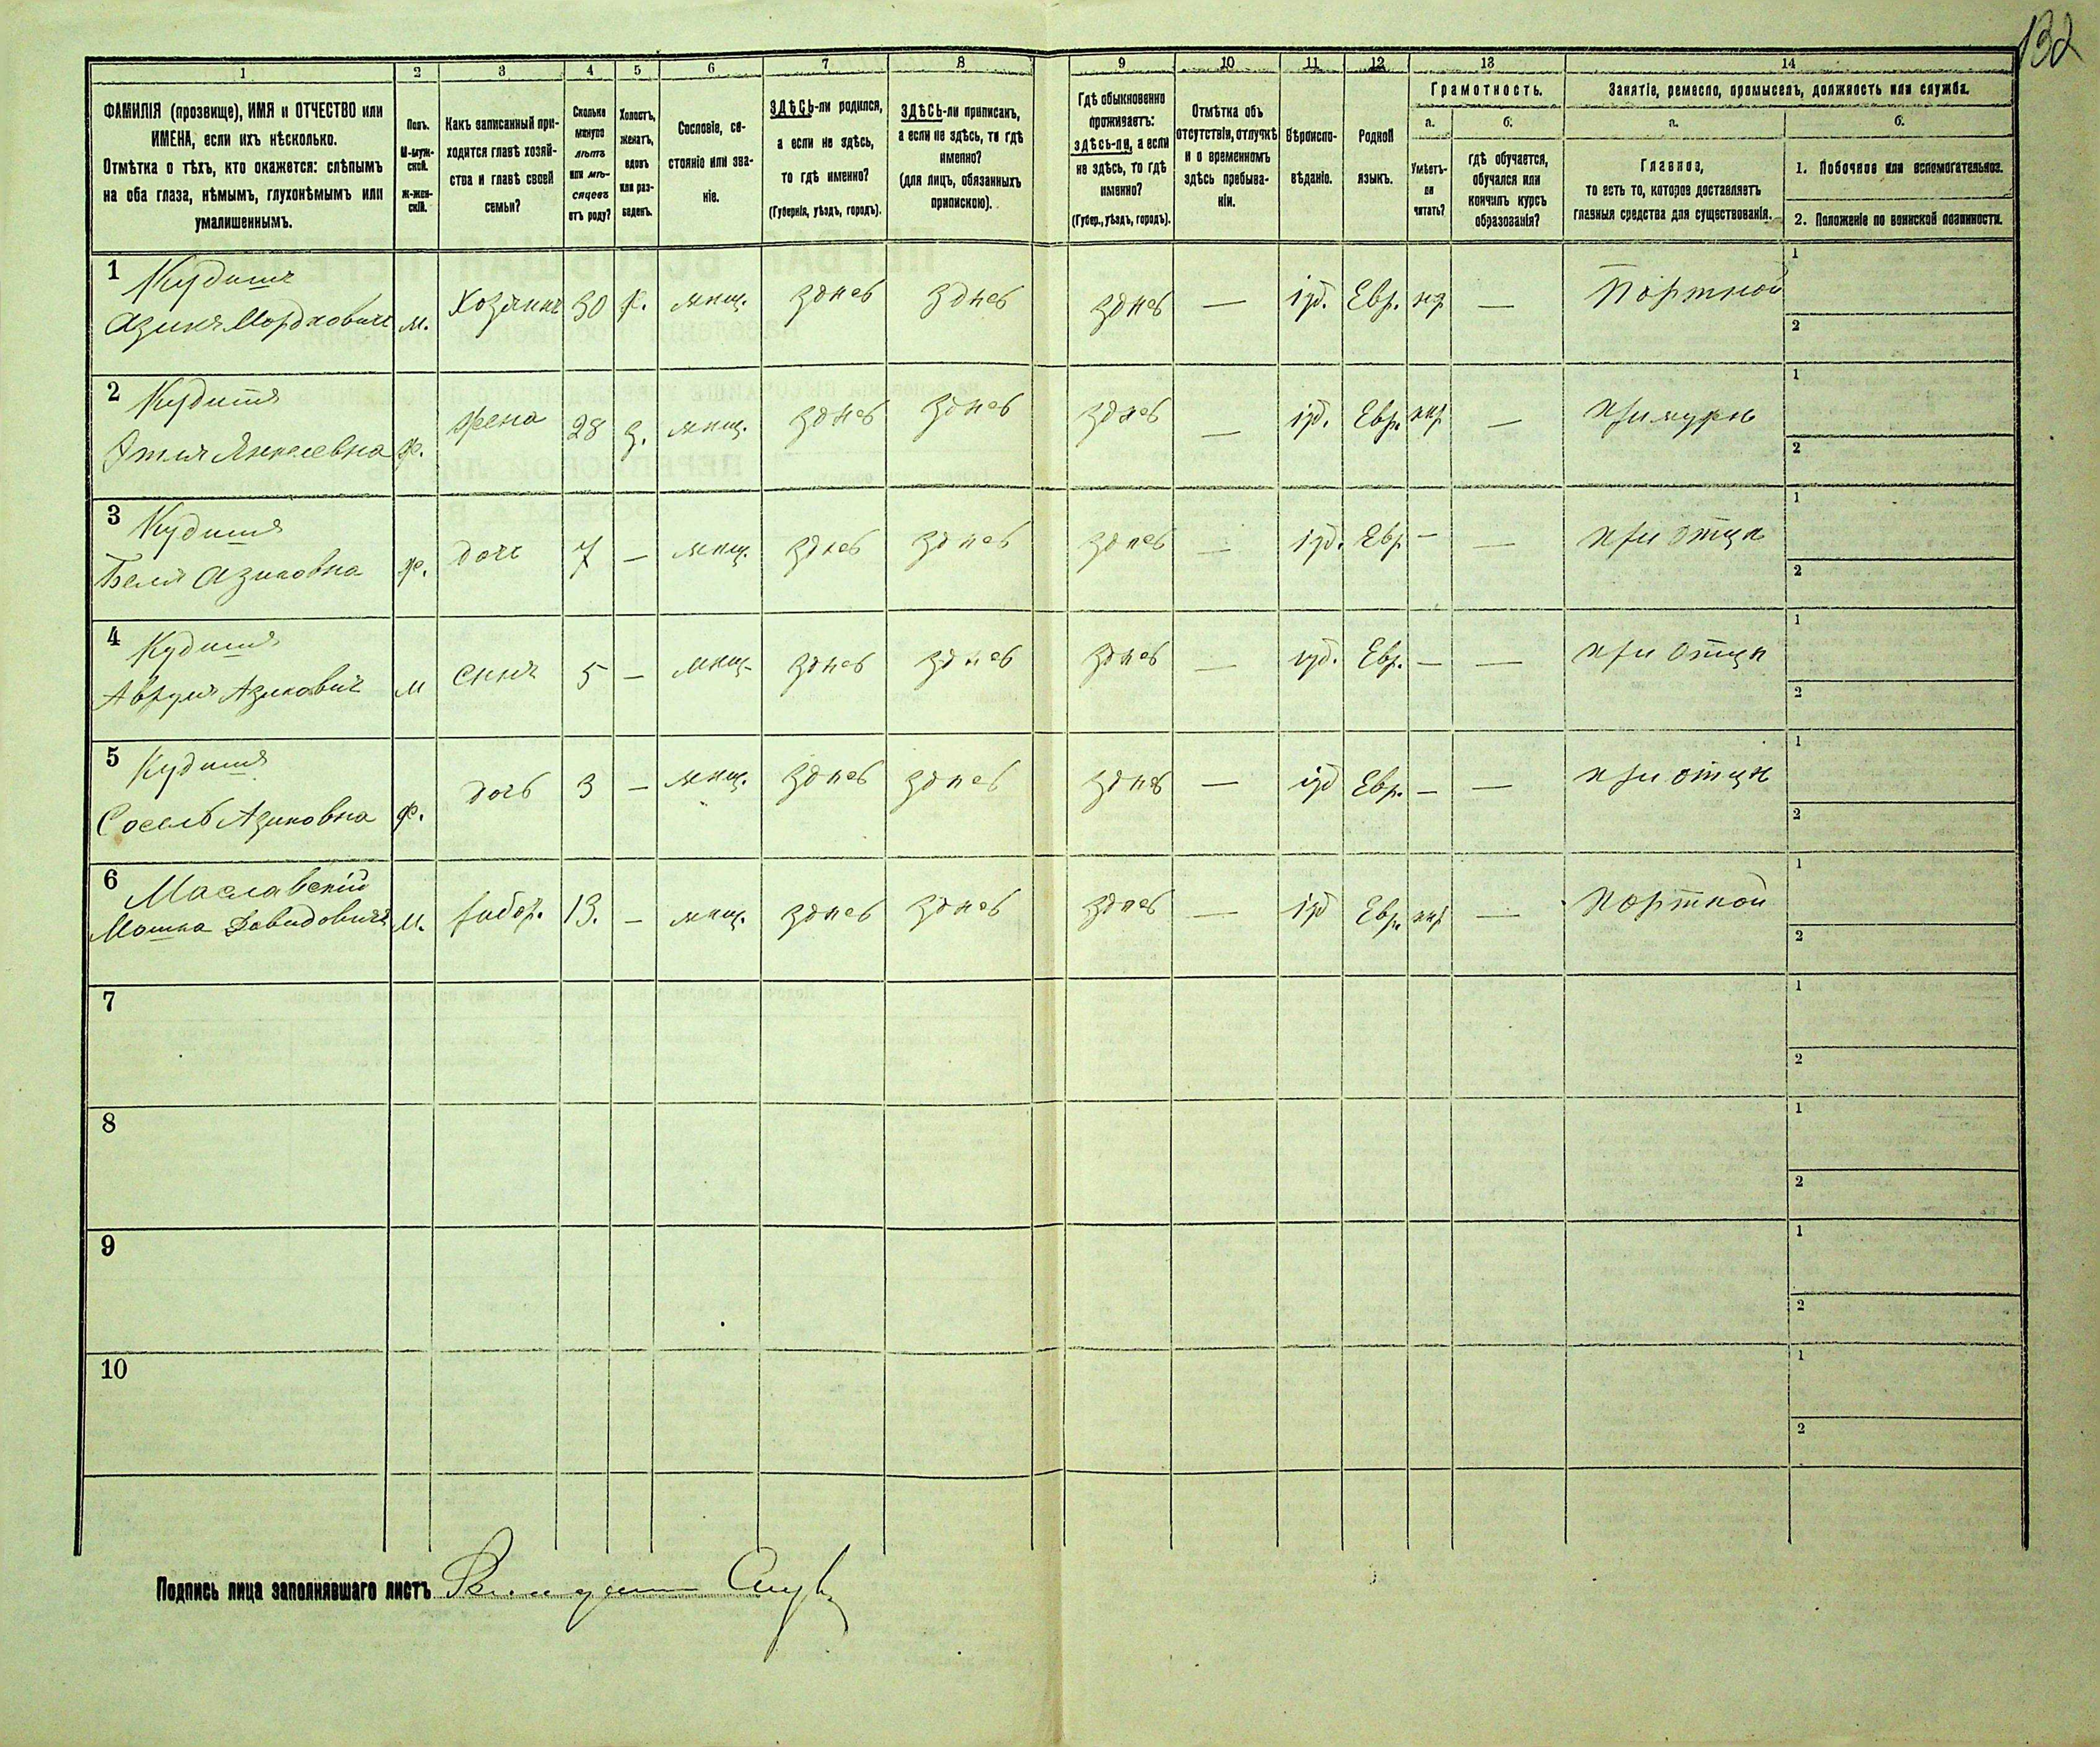 132
1 2 3 4 5 6 7 8 9 10 11 12 13 14
ФАМИЛІЯ (прозвище), ИМЯ и ОТЧЕСТВО или
ИМЕНА, если ихъ нѣсколько.
Отмѣтка о тѣхъ, кто окажется: слѣпымъ
на оба глаза, нѣмымъ, глухонѣмымъ или
умалишеннымъ.
Полъ.
М-муж-
ской.
Ж-жен-
скій.
Какъ записанный при-
ходится главѣ хозяй-
ства и главѣ своей
семьи?
Сколько
минуло
лѣтъ
или мѣ-
сяцевъ
отъ роду?
Холостъ,
женатъ,
вдовъ
или раз-
веденъ.
Сословіе, со-
стояніе или зва-
ніе.
ЗДѢСЬ-ли родился,
а если не здѣсь,
то гдѣ именно?
(Губернія, уѣздъ, городъ).
ЗДѢСЬ-ли приписанъ,
а если не здѣсь, то гдѣ
именно?
(для лицъ, обязанныхъ
припискою).
Гдѣ обыкновенно
проживаетъ:
здѣсь-ли, а если
не здѣсь, то гдѣ
именно?
(Губер., уѣздъ, городъ).
Отмѣтка объ
отсутствіи, отлучкѣ
и о временномъ
здѣсь пребыва-
ніи.
Вѣроиспо-
вѣданіе.
Родной
языкъ.
Грамотность.
а.
Умѣетъ-
ли
читать?
б.
гдѣ обучается,
обучался или
кончилъ курсъ
образованія?
Занятіе, ремесло, промыселъ, должность или служба.
а.
Главное,
то есть то, которое доставляетъ
главныя средства для существованія.
б.
1. Побочное или вспомогательное.
2. Положеніе по воинской повинности.
1 Кудишъ
Азикъ Мордковичъ м. Хозяинъ 30 ж. мѣщ. здѣсь здѣсь здѣсь — іуд. Евр. — Портной 1
2
2 Кудишъ
Этля Янкелевна ж. жена 28 з. мѣщ. здѣсь здѣсь здѣсь — іуд. Евр. — при мужѣ 1
2
3 Кудишъ
Беля Азиковна ж. дочь 7 — мѣщ. здѣсь здѣсь здѣсь — іуд. Евр — — при отцѣ 1
2
4 Кудишъ
Аврумъ Азиковичъ м сынъ 5 — мѣщ. здѣсь здѣсь здѣсь — іуд. Евр. — — при отцѣ 1
2
5 Кудишъ
Сосель Азиковна ж. дочь 3 — мѣщ. здѣсь здѣсь здѣсь — іуд Евр. — — при отцѣ 1
2
6 Маславскій
Мошка Давидовичъ м. 13. — мѣщ. здѣсь здѣсь здѣсь — іуд Евр. — Портной 1
2
7 1
2
8 1
2
9 1
2
10 1
2
Подпись лица заполнявшаго листъ